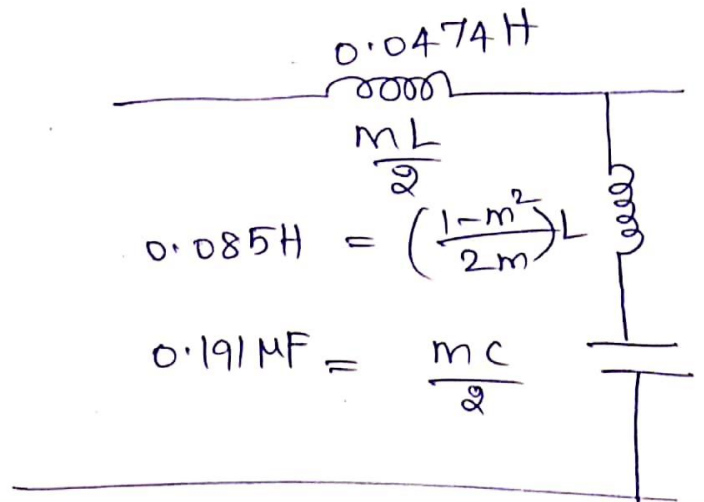 0.0474H
mL/2
0.085H = ((1-m²)/2m)L
0.191 MF = mc/2